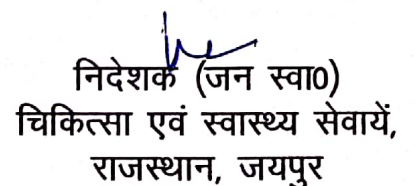 निदेशक (जन स्वा0)
चिकित्सा एवं स्वास्थ्य सेवायें,
राजस्थान, जयपुर